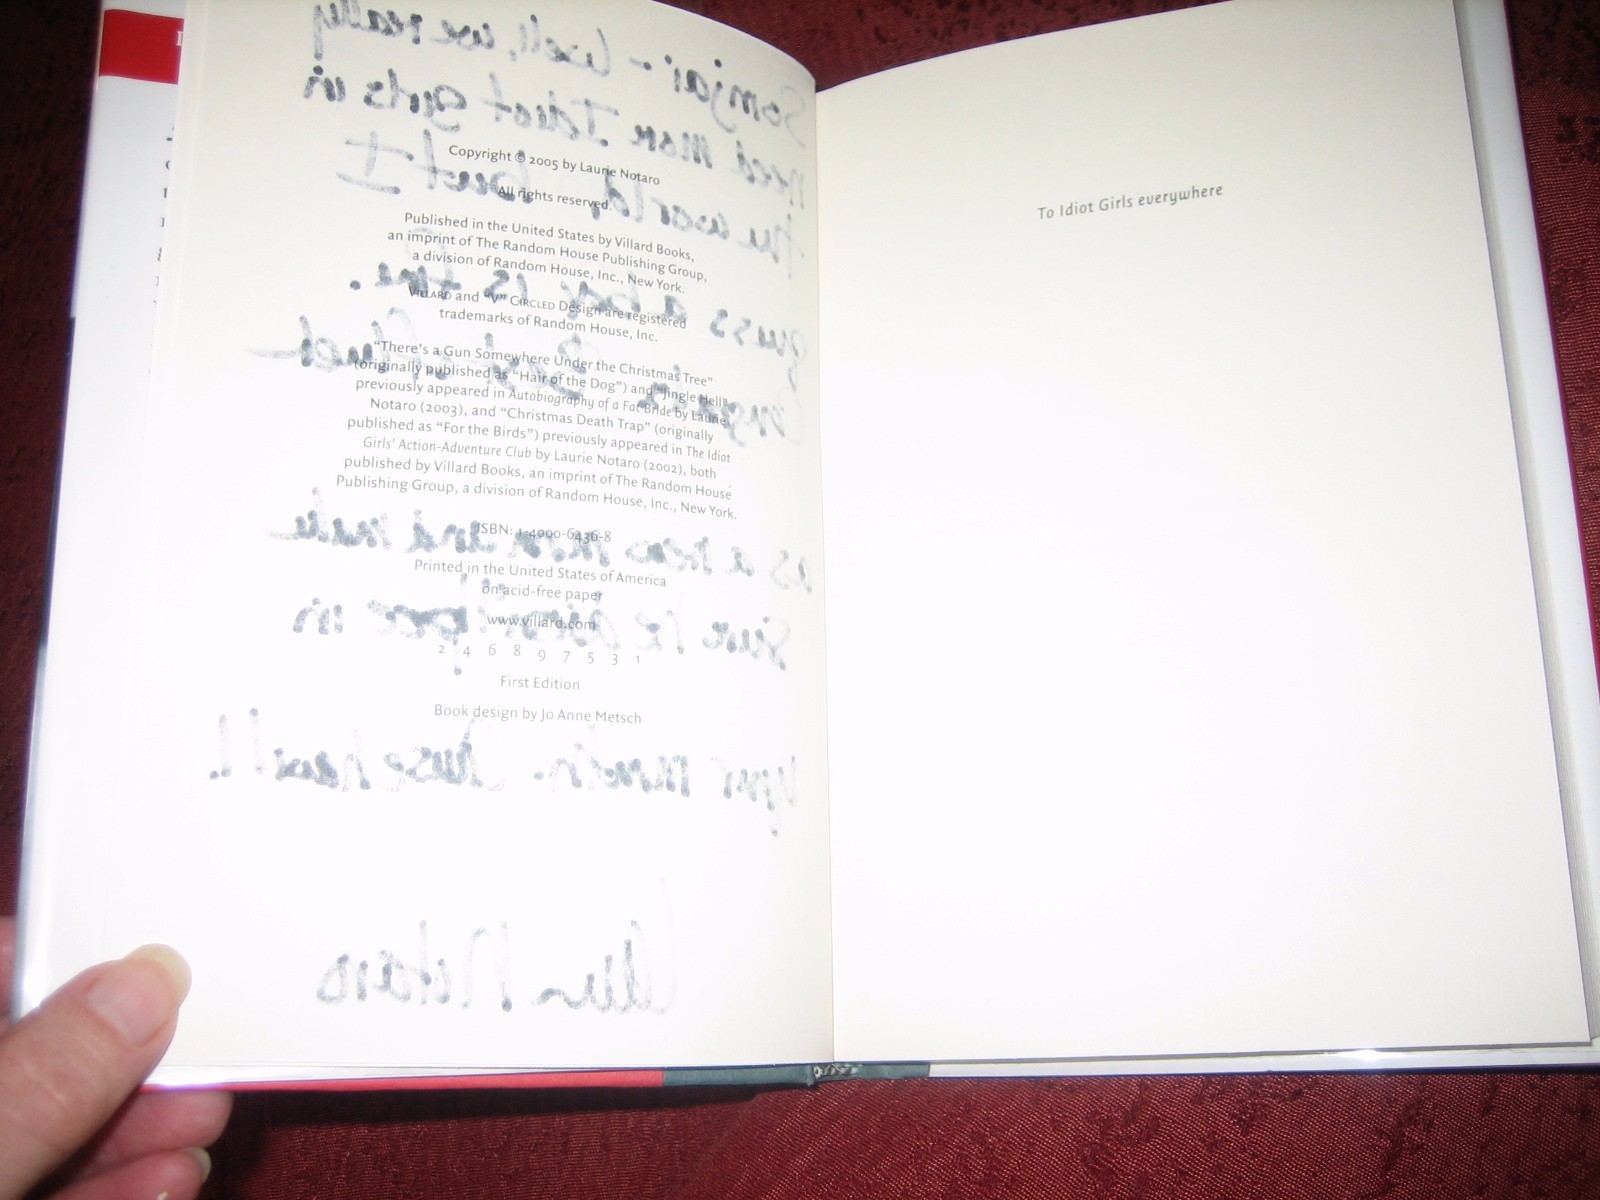 Somjai - Well, we really
need more Idiot Girls in
the world, but I
guess a boy is fine.
Congrats. Best of luck
as a new mom and make
sure he doesn't pee in
your mouth.
Notaro
Copyright © 2005 by Laurie Notaro
All rights reserved.
Published in the United States by Villard Books,
an imprint of The Random House Publishing Group,
a division of Random House, Inc., New York.
VILLARD and "V" CIRCLED Design are registered
trademarks of Random House, Inc.
"There's a Gun Somewhere Under the Christmas Tree"
(originally published as "Hair of the Dog") and "Jingle Hell"
previously appeared in Autobiography of a Fat Bride by Laurie
Notaro (2003), and "Christmas Death Trap" (originally
published as "For the Birds") previously appeared in The Idiot
Girls' Action-Adventure Club by Laurie Notaro (2002), both
published by Villard Books, an imprint of The Random House
Publishing Group, a division of Random House, Inc., New York.
ISBN: 1-4000-6436-8
Printed in the United States of America
on acid-free paper
www.villard.com
2 4 6 8 9 7 5 3 1
First Edition
Book design by Jo Anne Metsch
To Idiot Girls everywhere